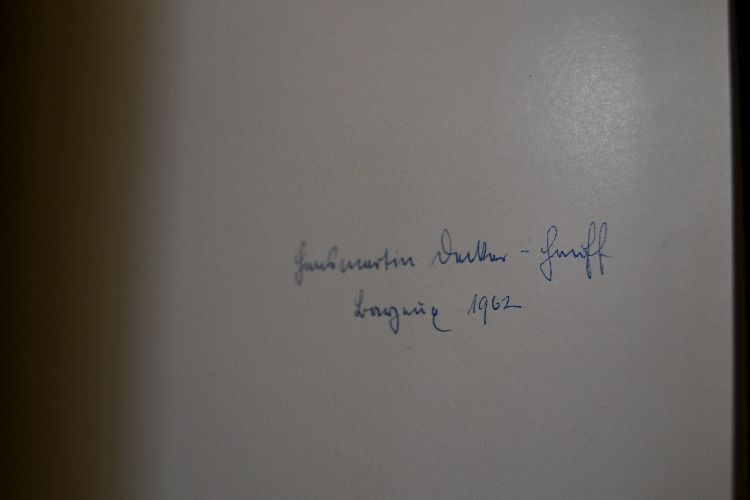 Hansmartin Decker-Hauff
1962